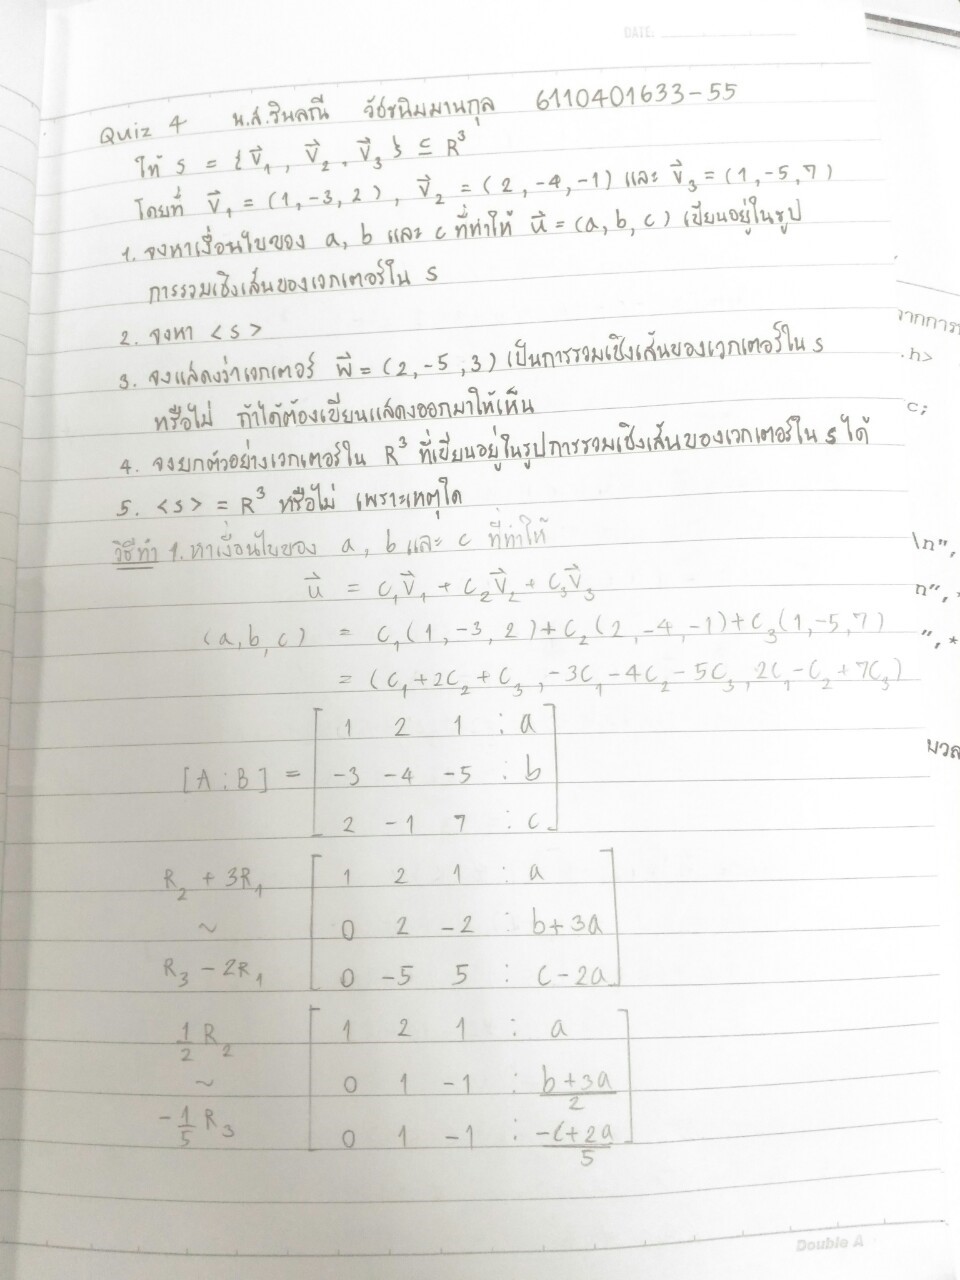 DATE:
Quiz 4 น.ส.ชินลณี วัธชนิมมานกุล 6110401633-55
ให้ S = {V⃗₁, V⃗₂, V⃗₃} ⊆ R³
โดยที่ V⃗₁ = (1,-3,2), V⃗₂ = (2,-4,-1) และ V⃗₃ = (1,-5,7)
1. จงหาเงื่อนไขของ a, b และ c ที่ทำให้ u⃗ = (a, b, c) เขียนอยู่ในรูป
การรวมเชิงเส้นของเวกเตอร์ใน S
2. จงหา <S>
3. จงแสดงว่าเวกเตอร์ w⃗ = (2,-5,3) เป็นการรวมเชิงเส้นของเวกเตอร์ใน S
หรือไม่ ถ้าได้ต้องเขียนแสดงออกมาให้เห็น
4. จงยกตัวอย่างเวกเตอร์ใน R³ ที่เขียนอยู่ในรูปการรวมเชิงเส้นของเวกเตอร์ใน S ได้
5. <S> = R³ หรือไม่ เพราะเหตุใด
วิธีทำ 1. หาเงื่อนไขของ a, b และ c ที่ทำให้
u⃗ = C₁V⃗₁ + C₂V⃗₂ + C₃V⃗₃
(a, b, c) = C₁(1,-3,2) + C₂(2,-4,-1) + C₃(1,-5,7)
= (C₁+2C₂+C₃, -3C₁-4C₂-5C₃, 2C₁-C₂+7C₃)
1 2 1 : a
[A : B] = -3 -4 -5 : b
2 -1 7 : c
R₂ + 3R₁ 1 2 1 : a
~ 0 2 -2 : b+3a
R₃ - 2R₁ 0 -5 5 : c-2a
1/2 R₂ 1 2 1 : a
~ 0 1 -1 : b+3a/2
-1/5 R₃ 0 1 -1 : -c+2a/5
Double A
จากการ
.h>
c;
\n",
n",
", *